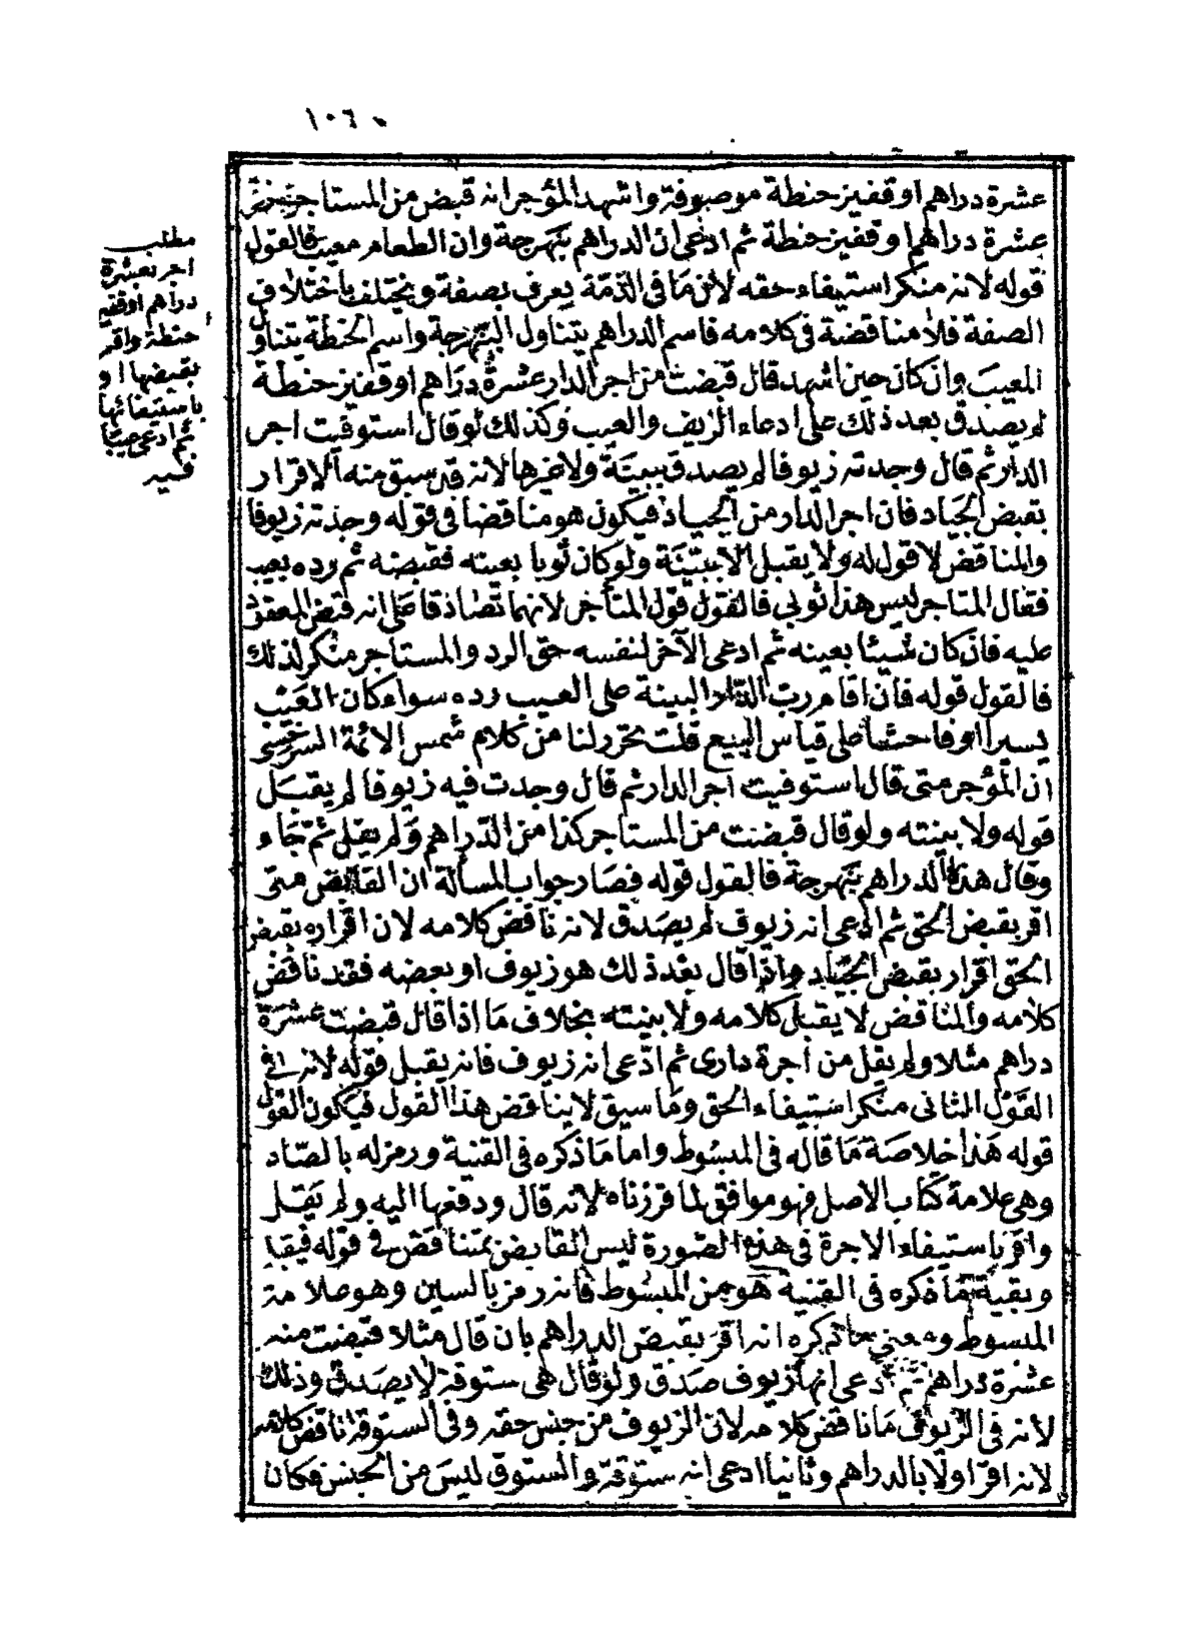 ١٠٦
مطلب
اجر بعشرة
دراهم اوقفيز
حنطة واقر
بقبضها او
باستيفائها
ثم ادعى عيبا
فيه
عشرة دراهم اوقفيز حنطة موصوفة واشهد المؤجر انه قبض من المستاجر
عشرة دراهم او قفيز حنطة ثم ادعى ان الدراهم بنهرجة وان الطعام معيب فالقول
قوله لانه منكر استيفاء حقه لان ما فى الذمة يعرف بصفة ويختلف باختلاف
الصفة فلا مناقضة فى كلامه فاسم الدراهم يتناول البنهرجة واسم الحنطة يتناول
المعيب وان كان حين اشهد قال قبضت من اجر الدار عشرة دراهم اوقفيز حنطة
لم يصدق بعد ذلك على ادعاء الزيف والعيب وكذلك لو قال استوفيت اجر
الدار ثم قال وجدته زيوفا لم يصدق ببينة ولا غيرها لانه قد سبق منه الاقرار
بقبض الجياد فان اجر الدار من الجياد فيكون هو مناقضا فى قوله وجدته زيوفا
والمناقض لا قول له ولا يقبل الاببينة ولو كان ثوبا بعينه فقبضه ثم رده بعيب
فقال المتاجر ليس هذا ثوبى فالقول قول المتأخر لانهما تصادقا على انه قبض المعقود
عليه فان كان شيئا بعينه ثم ادعى الآخر لنفسه حق الرد والمستاجر منكر لذلك
فالقول قوله فان اقام رب الدار البينة على العيب رده سواء كان العيب
يسيرا اوفاحشا على قياس البيع قلت تحرر لنا من كلام شمس الائمة السرخسى
ان المؤجر متى قال استوفيت اجر الدار ثم قال وجدت فيه زيوفا لم يقبل
قوله ولا بينته ولو قال قبضت من المستاجر كذا من الدراهم ولم يقل ثم جاء
وقال هذه الدراهم بنهرجة فالقول قوله فصار جواب المسألة ان القابض متى
اقر بقبض الحق ثم ادعى انه زيوف لم يصدق لانه ناقض كلامه لان اقراره بقبض
الحق اقرار بقبض الجياد واذا قال بعد ذلك هو زيوف او بعضه فقد ناقض
كلامه والمناقض لا يقبل كلامه ولا بينته بخلاف ما اذا قال قبضت عشرة
دراهم مثلا ولم يقل من اجرة دارى ثم ادعى انه زيوف فانه يقبل قوله لانه فى
القول الثانى منكر استيفاء الحق وما سبق لا يناقض هذا القول فيكون القول
قوله هذا خلاصة ما قاله فى المبسوط واما ما ذكره فى القنية ورمز له بالصاد
وهى علامة كتاب الاصل فهو موافق لما قررناه لانه قال ودفعها اليه ولم يقل
واقر باستيفاء الاجرة فى هذه الصورة ليس القابض بمتناقض فى قوله فيقبل
وبقية ما ذكره فى القنية هو من المبسوط فانه رمز بالسين وهو علامة
المبسوط ومعنى ما ذكره انه اقر بقبض الدراهم بان قال مثلا قبضت منه
عشرة دراهم ثم ادعى انها زيوف صدق ولو قال هى ستوقة لا يصدق وذلك
لانه فى الزيوف ما ناقض كلامه لان الزيوف من جنس حقه وفى الستوقة ناقض كلامه
لانه اقر اولا بالدراهم وثانيا ادعى انه ستوقة والستوق ليس من الجنس فكان